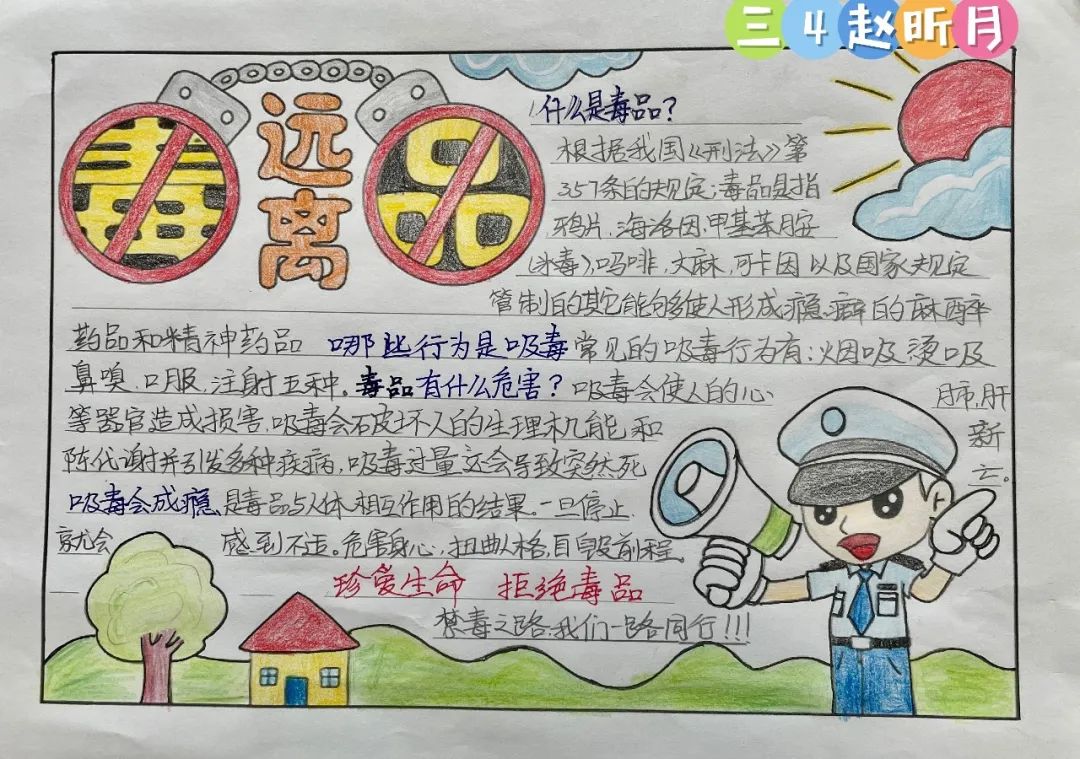 三4赵昕月
远离
毒品
什么是毒品?
根据我国《刑法》第
357条的规定;毒品是指
鸦片.海洛因.甲基苯胺
(冰毒),吗啡,大麻,可卡因以及国家规定
管制的其它能够使人形成瘾癖的麻醉
药品和精神药品 哪些行为是吸毒 常见的吸毒行为有:烟吸 烫吸
鼻嗅,口服,注射五种。毒品有什么危害?吸毒会使人的心 肺,肝
等器官造成损害,吸毒会破坏人的生理机能和 新
陈代谢并引发多种疾病,吸毒过量还会导致突然死 亡。
吸毒会成瘾,是毒品与人体相互作用的结果。一旦停止
就会 感到不适。危害身心,扭曲人格,自毁前程
珍爱生命 拒绝毒品
禁毒之路.我们一路同行!!!